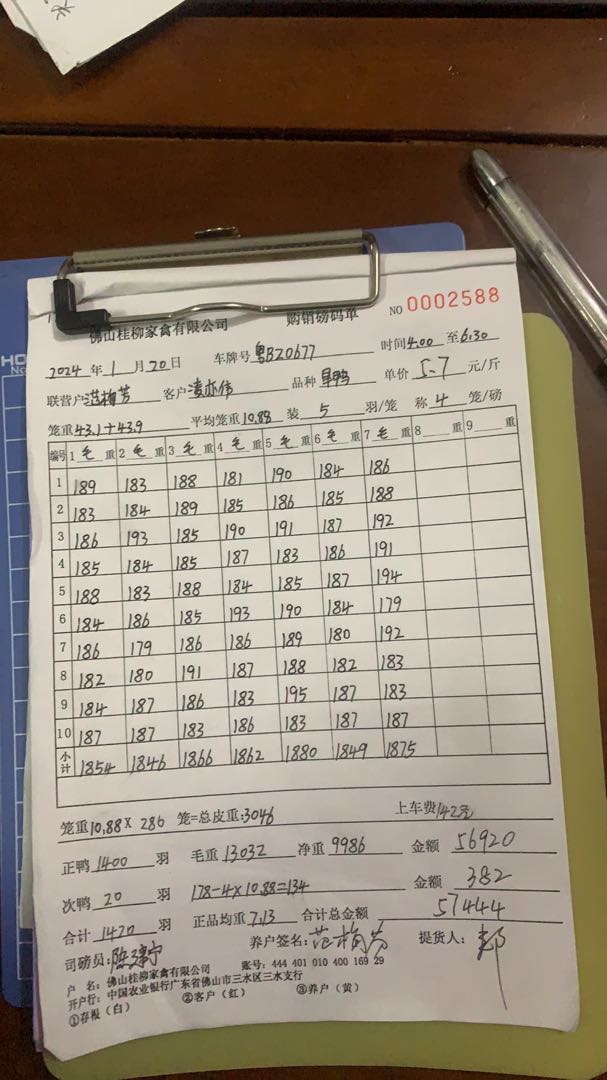 佛山桂柳家禽有限公司 购销磅码单 NO 0002588
2024 年 1 月 20 日 车牌号 粤BZ0677 时间 4.00 至 6:30
联营户 范梅芳 客户 凌亦伟 品种 旱鸭 单价 5.7 元/斤
笼重 43.1+43.9 平均笼重 10.88 装 5 羽/笼 称 4 笼/磅
编号 1 毛 重 2 毛 重 3 毛 重 4 毛 重 5 毛 重 6 毛 重 7 毛 重 8 重 9 重
1 189 183 188 181 190 184 186
2 183 184 189 185 186 185 188
3 186 193 185 190 191 187 192
4 185 184 185 187 183 186 191
5 188 183 188 184 185 187 194
6 184 186 185 193 190 184 179
7 186 179 186 186 189 180 192
8 182 180 191 187 188 182 183
9 184 187 186 183 195 187 183
10 187 187 183 186 183 187 187
小计 1854 1846 1866 1862 1880 1849 1875
笼重 10,88 X 280 笼=总皮重: 3046 上车费 142元
正鸭 1400 羽 毛重 13032 净重 9986 金额 56920
次鸭 20 羽 178-4×10.88=134 金额 382
合计 1420 羽 正品均重 7.13 合计总金额 57444
司磅员: 养户签名: 范梅芳 提货人:
户 名: 佛山桂柳家禽有限公司 账号: 444 401 010 400 169 29
开户行: 中国农业银行广东省佛山市三水区三水支行
①存根（白） ②客户（红） ③养户（黄）